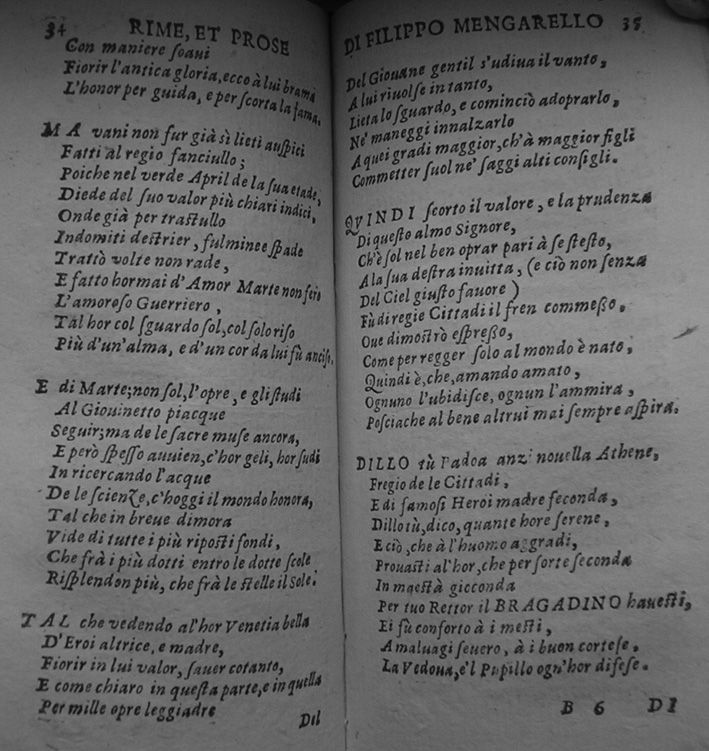 34 RIME, ET PROSE
Con maniere ſoaui
Fiorir l'antica gloria, ecco à lui brama
L'honor per guida, e per ſcorta la fama.
MA vani non fur già sì lieti auſpici
Fatti al regio fanciullo;
Poiche nel verde April de la ſua etade,
Diede del ſuo valor più chiari indici,
Onde già per traſtullo
Indomiti deſtrier, fulminee ſpade
Trattò volte non rade,
E fatto hormai d'Amor Marte non fero
L'amoroſo Guerriero,
Tal hor col ſguardo ſol, col ſolo riſo
Più d'un'alma, e d'un cor da lui fù anciſo.
E di Marte; non ſol, l'opre, e gli ſtudi
Al Giouinetto piacque
Seguir; ma de le ſacre muſe ancora,
E però ſpeſſo auuien, c'hor geli, hor ſudi
In ricercando l'acque
De le ſcienze, c'hoggi il mondo honora,
Tal che in breue dimora
Vide di tutte i più ripoſti fondi,
Che frà i più dotti entro le dotte ſcole
Riſplendon più, che frà le ſtelle il Sole.
TAL che vedendo al'hor Venetia bella
D'Eroi altrice, e madre,
Fiorir in lui valor, ſauer cotanto,
E come chiaro in queſta parte, e in quella
Per mille opre leggiadre
Del
DI FILIPPO MENGARELLO 35
Del Giouane gentil s'udiua il vanto,
A lui riuolſe in tanto,
Lieta lo ſguardo, e cominciò adoprarlo,
Ne' maneggi innalzarlo
A quei gradi maggior, ch'à maggior figli
Commetter ſuol ne' ſaggi alti conſigli.
QVINDI ſcorto il valore, e la prudenza
Di queſto almo Signore,
Ch'è ſol nel ben oprar pari à ſe ſteſſo,
A la ſua deſtra inuitta, (e ciò non ſenza
Del Ciel giuſto fauore)
Fù di regie Cittadi il fren commeſſo,
Oue dimoſtrò eſpreſſo,
Come per regger ſolo al mondo è nato,
Quindi è, che, amando amato,
Ognuno l'ubidiſce, ognun l'ammira,
Poſciache al bene altrui mai ſempre aſpira.
DILLO tù Padoa anzi nouella Athene,
Fregio de le Cittadi,
E di famoſi Heroi madre feconda,
Dillo tù, dico, quante hore ſerene,
E ciò, che à l'huomo aggradi,
Prouaſti al'hor, che per ſorte ſeconda
In maeſtà gioconda
Per tuo Rettor il BRAGADINO haueſti,
Ei fù conforto à i meſti,
A maluagi ſeuero, à i buon corteſe,
La Vedoua, e'l Pupillo ogn'hor difeſe.
B 6 DI